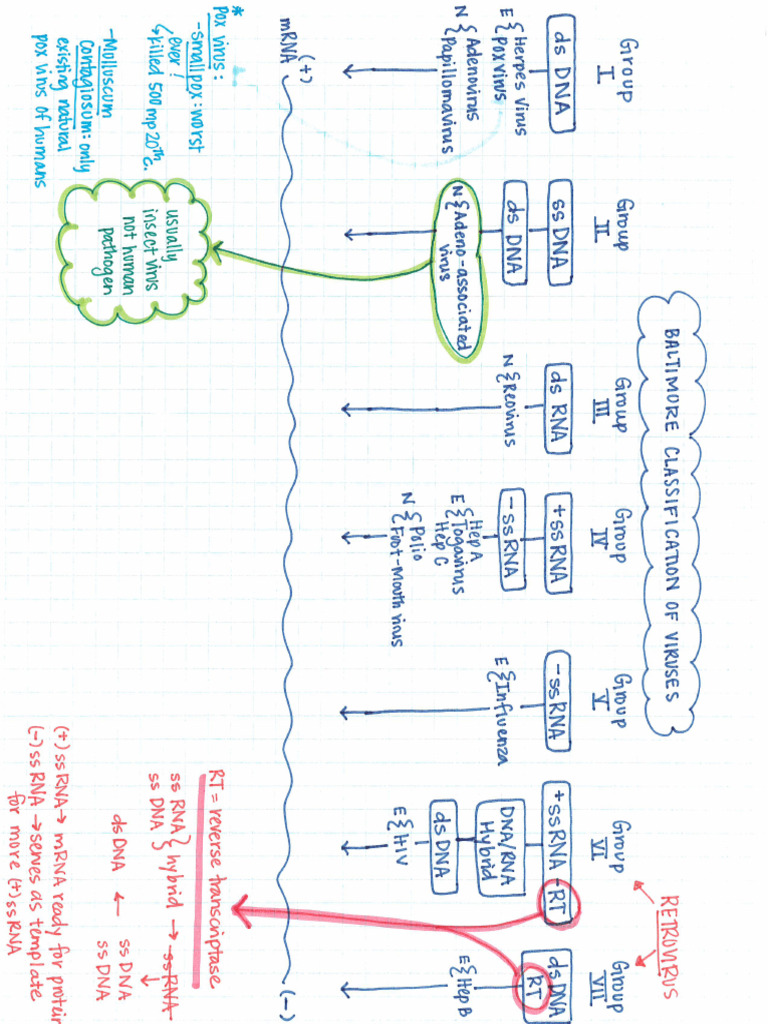 BALTIMORE CLASSIFICATION OF VIRUSES
RETROVIRUS
Group
I
ds DNA
E { Herpes virus
Poxvirus
N { Adenovirus
Papillomavirus
Group
II
ss DNA
ds DNA
N { Adeno-associated
virus
Group
III
ds RNA
N { Reovirus
Group
IV
+ssRNA
-ssRNA
Hep A
E { Togavirus
Hep C
N { Polio
Foot-Mouth virus
Group
V
-ssRNA
E { Influenza
Group
VI
+ssRNA-RT
DNA/RNA
Hybrid
dsDNA
E { HIV
Group
VII
dsDNA
RT
E { Hep B
(+)
mRNA
(-)
*
Pox virus:
-smallpox: worst
ever!
killed 500 mp 20th c.
-Molluscum
Contagiosum: only
existing natural
pox virus of humans
usually
insect virus
not human
pathogen
RT = reverse transcriptase
ss RNA } hybrid → ssRNA
ss DNA
↓
dsDNA ← ssDNA
ssDNA
(+) ssRNA → mRNA ready for protein
(-) ssRNA → serves as template
for more (+) ssRNA